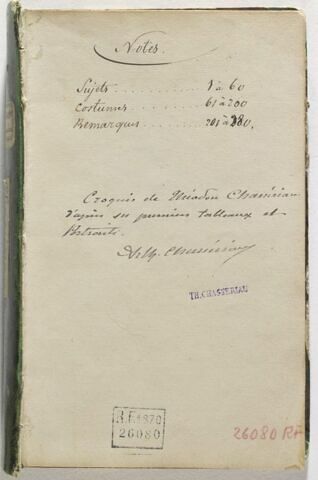 Notes.
Sujets . . . . . . . . . . . 1 à 60
Costumes . . . . . . . . 61 à 200
Remarques . . . . . . . 201 à 280.
Croquis de Théodore Chassériau
d'après ses premiers tableaux et
Portraits.
Arth. Chassériau
TH. CHASSERIAU
R.F. 1870
26080
26080 RF